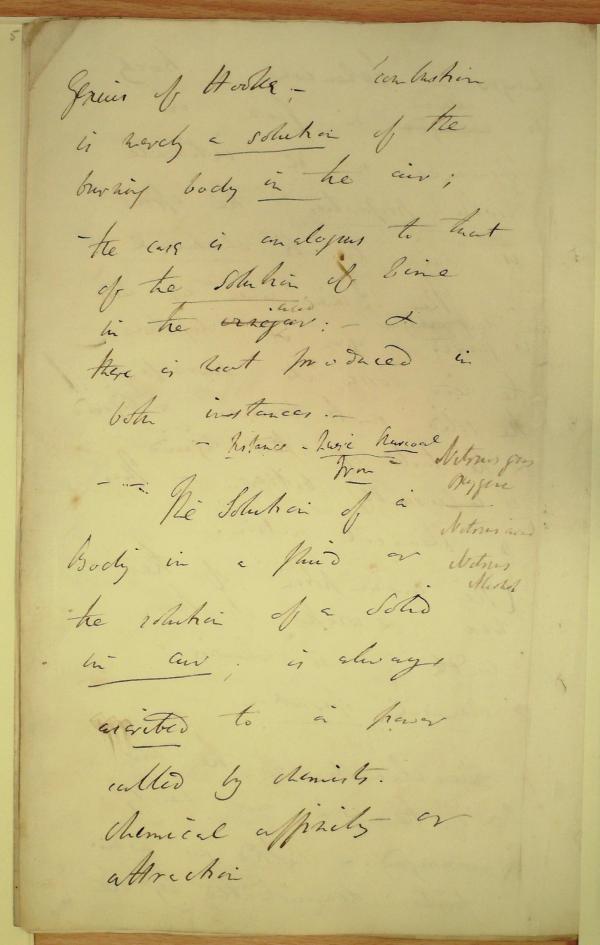 5
Genius of Hooke, - Combustion
is merely a solution of the
burning body in the air;
- the case is analogous to that
of the solution of Lime
acid
in the vinegar: - &
there is heat produced in
both instances. -
- Instance - Charcoal
Iron =
Nitrous gas
oxygene
- The Solution of a
Nitrous acid
Body in a fluid or
Nitrous
Alcohol
the solution of a Solid
in air, is always
ascribed to a power
called by chemists.
chemical affinity or
attraction